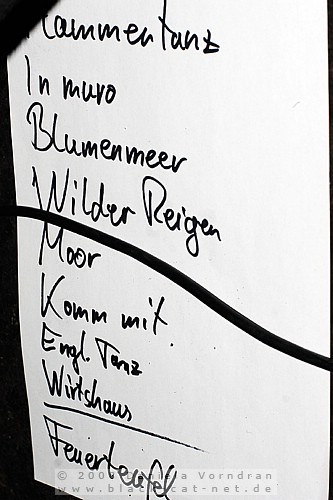 Flammentanz
In muro
Blumenmeer
Wilder Reigen
Moor
Komm mit
Engl. Tanz
Wirtshaus
Feuerteufel
Vorndran
www.blackcat-net.de